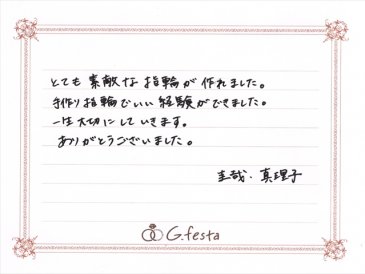 とても素敵な指輪が作れました。
手作り指輪でいい経験ができました。
一生大切にしていきます。
ありがとうございました。
圭哉・真理子
G.festa